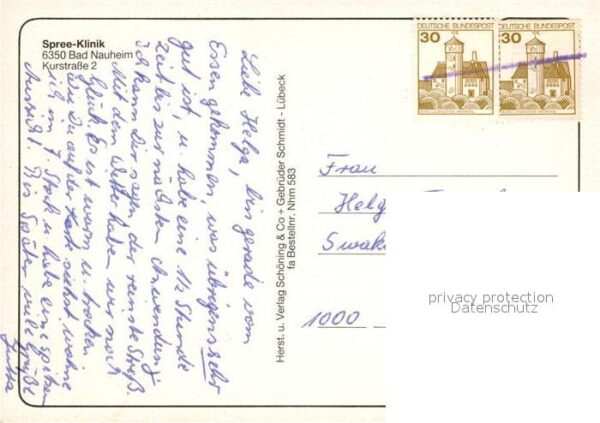 Spree-Klinik
6350 Bad Nauheim
Kurstraße 2
Liebe Helga, bin gerade vom
Essen gekommen, was übrigens sehr
gut ist, u. habe eine 1/2 Stunde
Zeit bis zur nächsten Anwendung.
Ich kann Dir sagen, der reinste Streß.
Mit dem Wetter haben wir noch
Glück. Es ist warm u. trocken.
Wie Du auf der Karte siehst wohne
ich im 7. Stock u. habe eine
Aussicht. Bis Später viele Grüße
Jutta
Herst. u. Verlag Schöning & Co + Gebrüder Schmidt - Lübeck
fa Bestellnr. Nhm 583
DEUTSCHE BUNDESPOST
30
DEUTSCHE BUNDESPOST
30
Frau
Helg
Swak
1000
privacy protection
Datenschutz